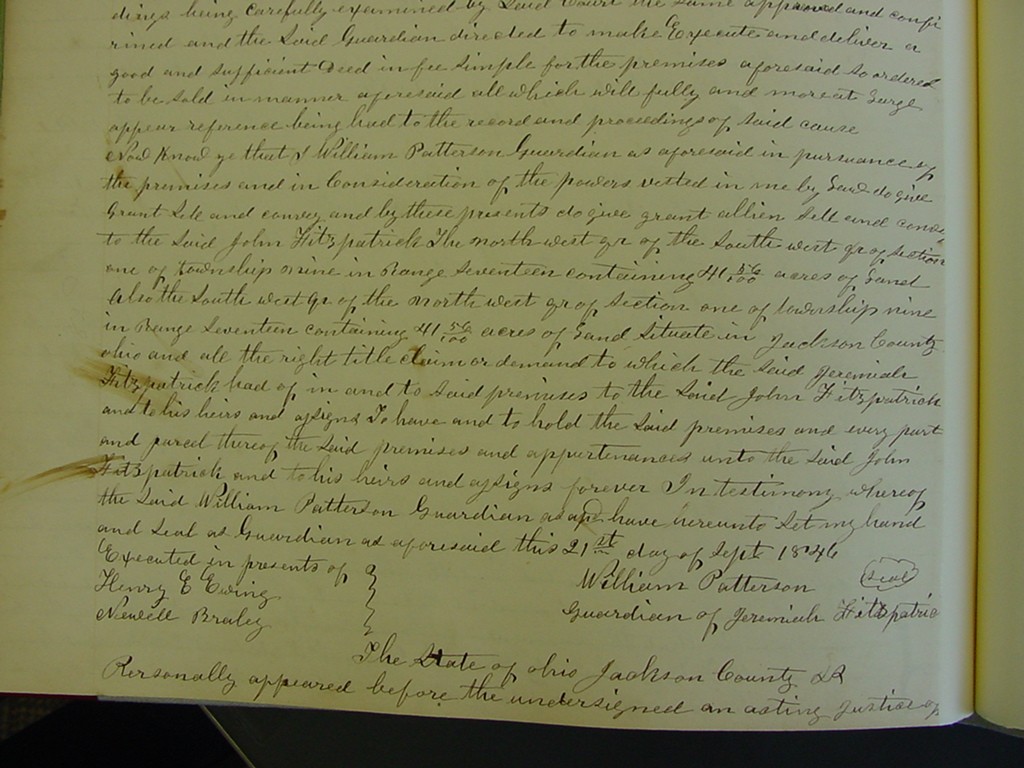 dings being carefully examined by Said Court the same approved and confi
rmed and the Said Guardian directed to make Execute and deliver a
good and sufficient Deed in fee Simple for the premises aforesaid so ordered
to be Sold in manner aforesaid all which will fully and more at Large
appear reference being had to the record and proceedings of said cause
Now Know ye that I William Patterson Guardian as aforesaid in pursuance of
the premises and in Consideration of the powers vested in me by Law do give
Grant Sell and convey and by these presents do give grant allien Sell and convey
to the Said John Fitzpatrick The north west qr of the South west qr of Section
one of Township nine in Range Seventeen containing 41 56/100 acres of Land
Also the South west qr of the north west qr of Section one of township nine
in Range Seventeen containing 41 56/100 acres of Land Situate in Jackson County
Ohio and all the right title claim or demand to which the Said Jeremiah
Fitzpatrick had of in and to Said premises to the Said John Fitzpatrick
and to his heirs and assigns To have and to hold the Said premises and every part
and parcel thereof the Said premises and appurtenances unto the Said John
Fitzpatrick and to his heirs and assigns forever In testimony whereof
the Said William Patterson Guardian as have hereunto Set my hand
and Seal as Guardian as aforesaid this 21st day of Sept 1846
Executed in presents of William Patterson Seal
Henry E Ewing Guardian of Jeremiah Fitzpatric
Newell Braley
The State of Ohio Jackson County SS
Personally appeared before the undersigned an acting Justice of